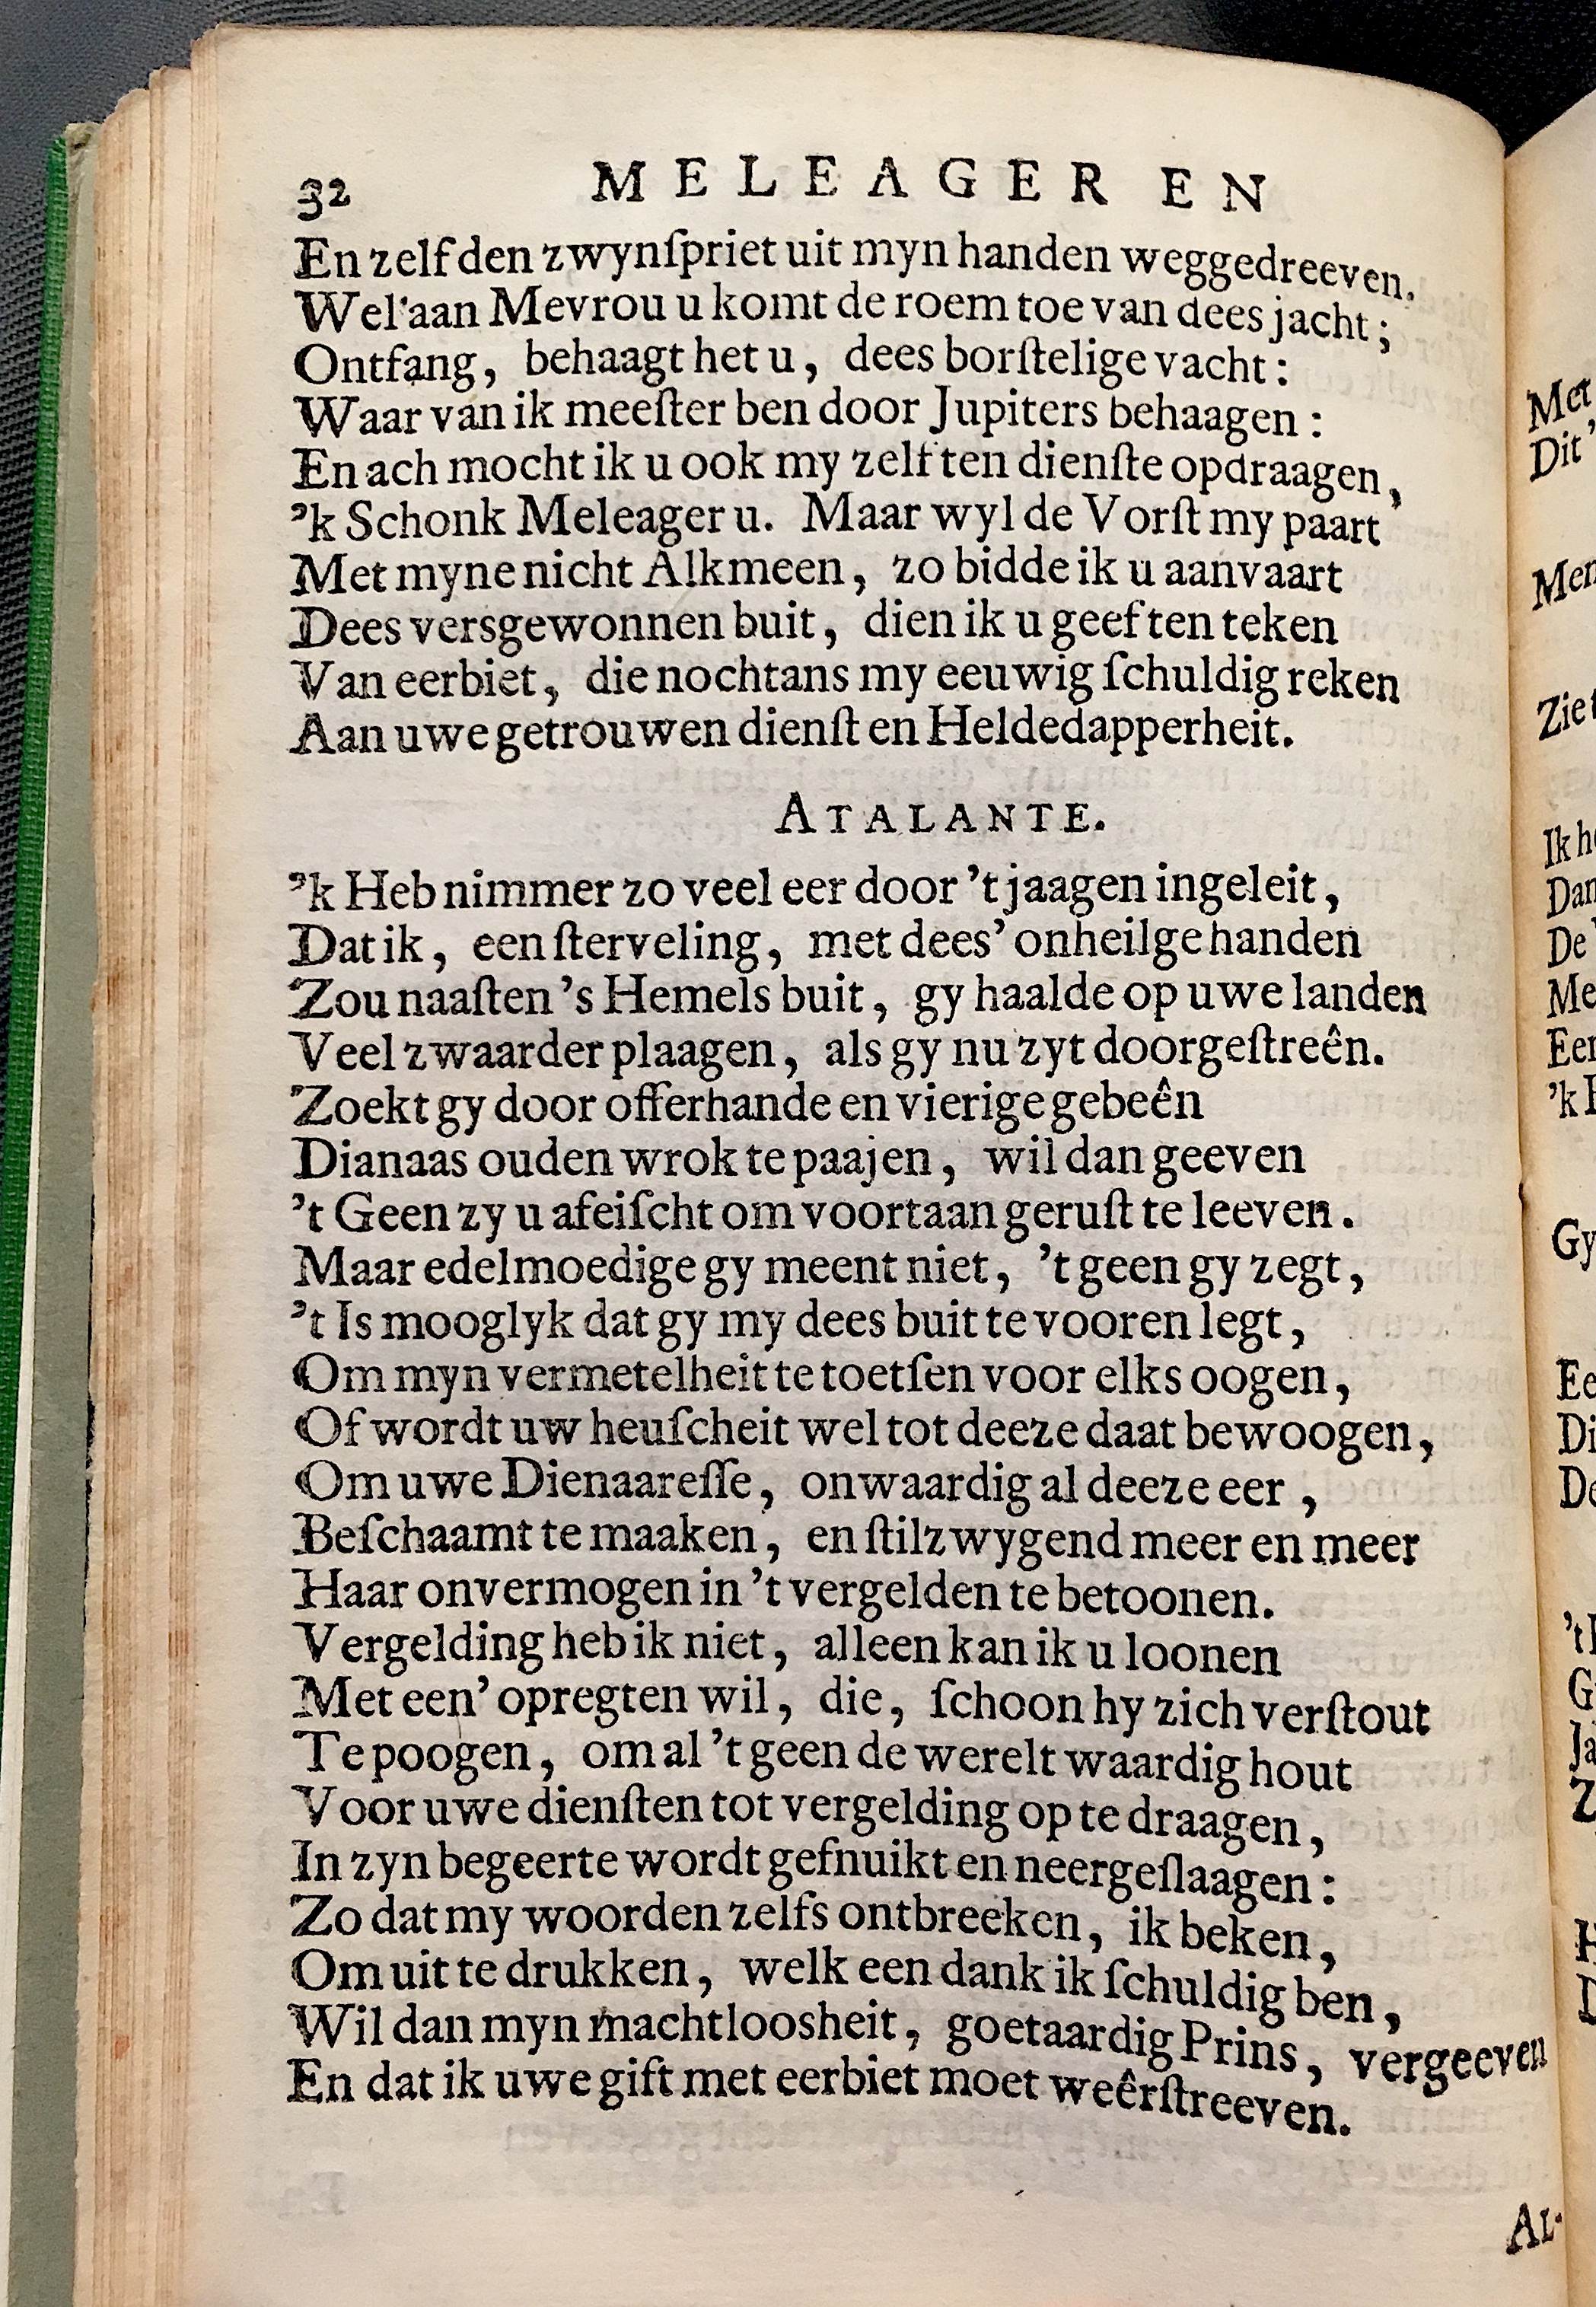 32 MELEAGER EN
En zelf den zwynſpriet uit myn handen weggedreeven.
Wel'aan Mevrou u komt de roem toe van dees jacht;
Ontfang, behaagt het u, dees borſtelige vacht:
Waar van ik meeſter ben door Jupiters behaagen:
En ach mocht ik u ook my zelf ten dienſte opdraagen,
'k Schonk Meleager u. Maar wyl de Vorſt my paart
Met myne nicht Alkmeen, zo bidde ik u aanvaart
Dees versgewonnen buit, dien ik u geef ten teken
Van eerbiet, die nochtans my eeuwig ſchuldig reken
Aan uwe getrouwen dienſt en Heldedapperheit.
ATALANTE.
'k Heb nimmer zo veel eer door 't jaagen ingeleit,
Dat ik, een ſterveling, met dees' onheilge handen
Zou naaſten 's Hemels buit, gy haalde op uwe landen
Veel zwaarder plaagen, als gy nu zyt doorgeſtreên.
Zoekt gy door offerhande en vierige gebeên
Dianaas ouden wrok te paajen, wil dan geeven
't Geen zy u afeiſcht om voortaan geruſt te leeven.
Maar edelmoedige gy meent niet, 't geen gy zegt,
't Is mooglyk dat gy my dees buit te vooren legt,
Om myn vermetelheit te toetſen voor elks oogen,
Of wordt uw heuſcheit wel tot deeze daat bewoogen,
Om uwe Dienaareſſe, onwaardig al deeze eer,
Beſchaamt te maaken, en ſtilzwygend meer en meer
Haar onvermogen in 't vergelden te betoonen.
Vergelding heb ik niet, alleen kan ik u loonen
Met een' opregten wil, die, ſchoon hy zich verſtout
Te poogen, om al 't geen de werelt waardig hout
Voor uwe dienſten tot vergelding op te draagen,
In zyn begeerte wordt gefnuikt en neergeſlaagen:
Zo dat my woorden zelfs ontbreeken, ik beken,
Om uit te drukken, welk een dank ik ſchuldig ben,
Wil dan myn machtloosheit, goetaardig Prins, vergeeven
En dat ik uwe gift met eerbiet moet weêrſtreeven.
AL-
Met
Dit '
Men
Zie t
Ik h
Dan
De
Me
Een
'k H
Gy
Ee
Di
De
't
G
Ja
Z